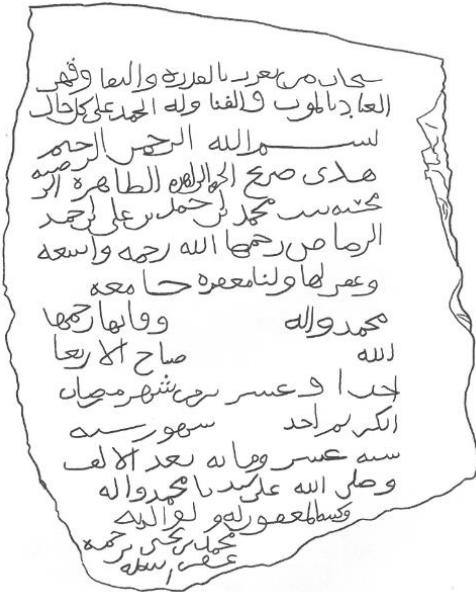 سبحان من تعزز بالقدرة والبقا وقهر
العباد بالموت والفنا وله الحمد على كل حال
بسم الله الرحمن الرحيم
هذى ضريح الحرة الطاهرة
بنت محمد بن حمد بن علي بن حمد
رحمها الله رحمة واسعة
وغفر لها ولنا مغفرة جامعة
محمد واله وفاتها رحمها
الله صباح الاربعا
احدا وعشرين من شهر رمضان
الكريم احد شهور سنة
سنة عشر ومائة بعد الالف
وصلى الله على سيدنا محمد واله
وكتبه المغفور له ولوالديه
محمد بن يحيى بن
غفر الله له